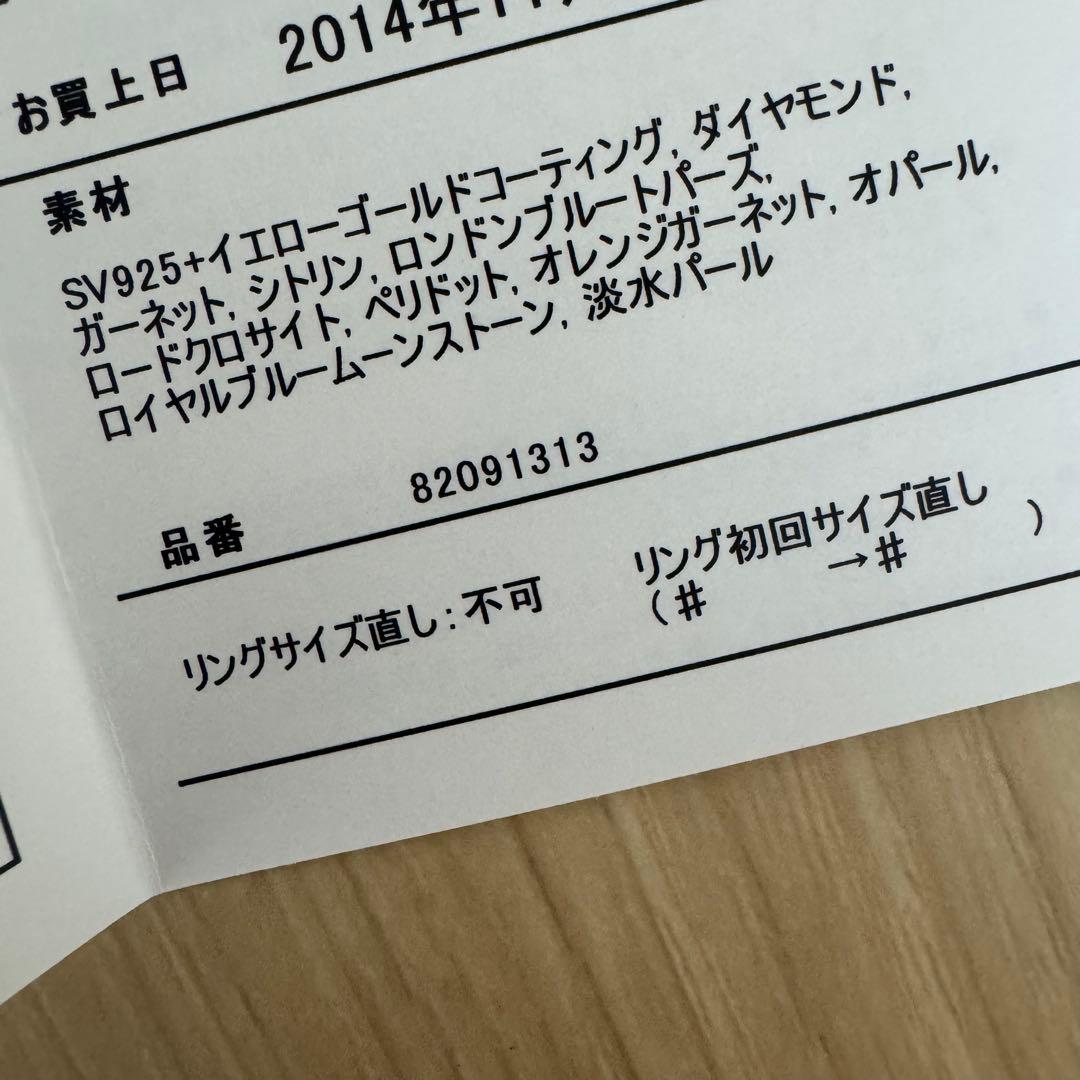 お買上日 2014年11
素材
SV925+イエローゴールドコーティング, ダイヤモンド,
ガーネット, シトリン, ロンドンブルートパーズ,
ロードクロサイト, ペリドット, オレンジガーネット, オパール,
ロイヤルブルームーンストーン, 淡水パール
品番 82091313
リングサイズ直し:不可 リング初回サイズ直し
(# →# )